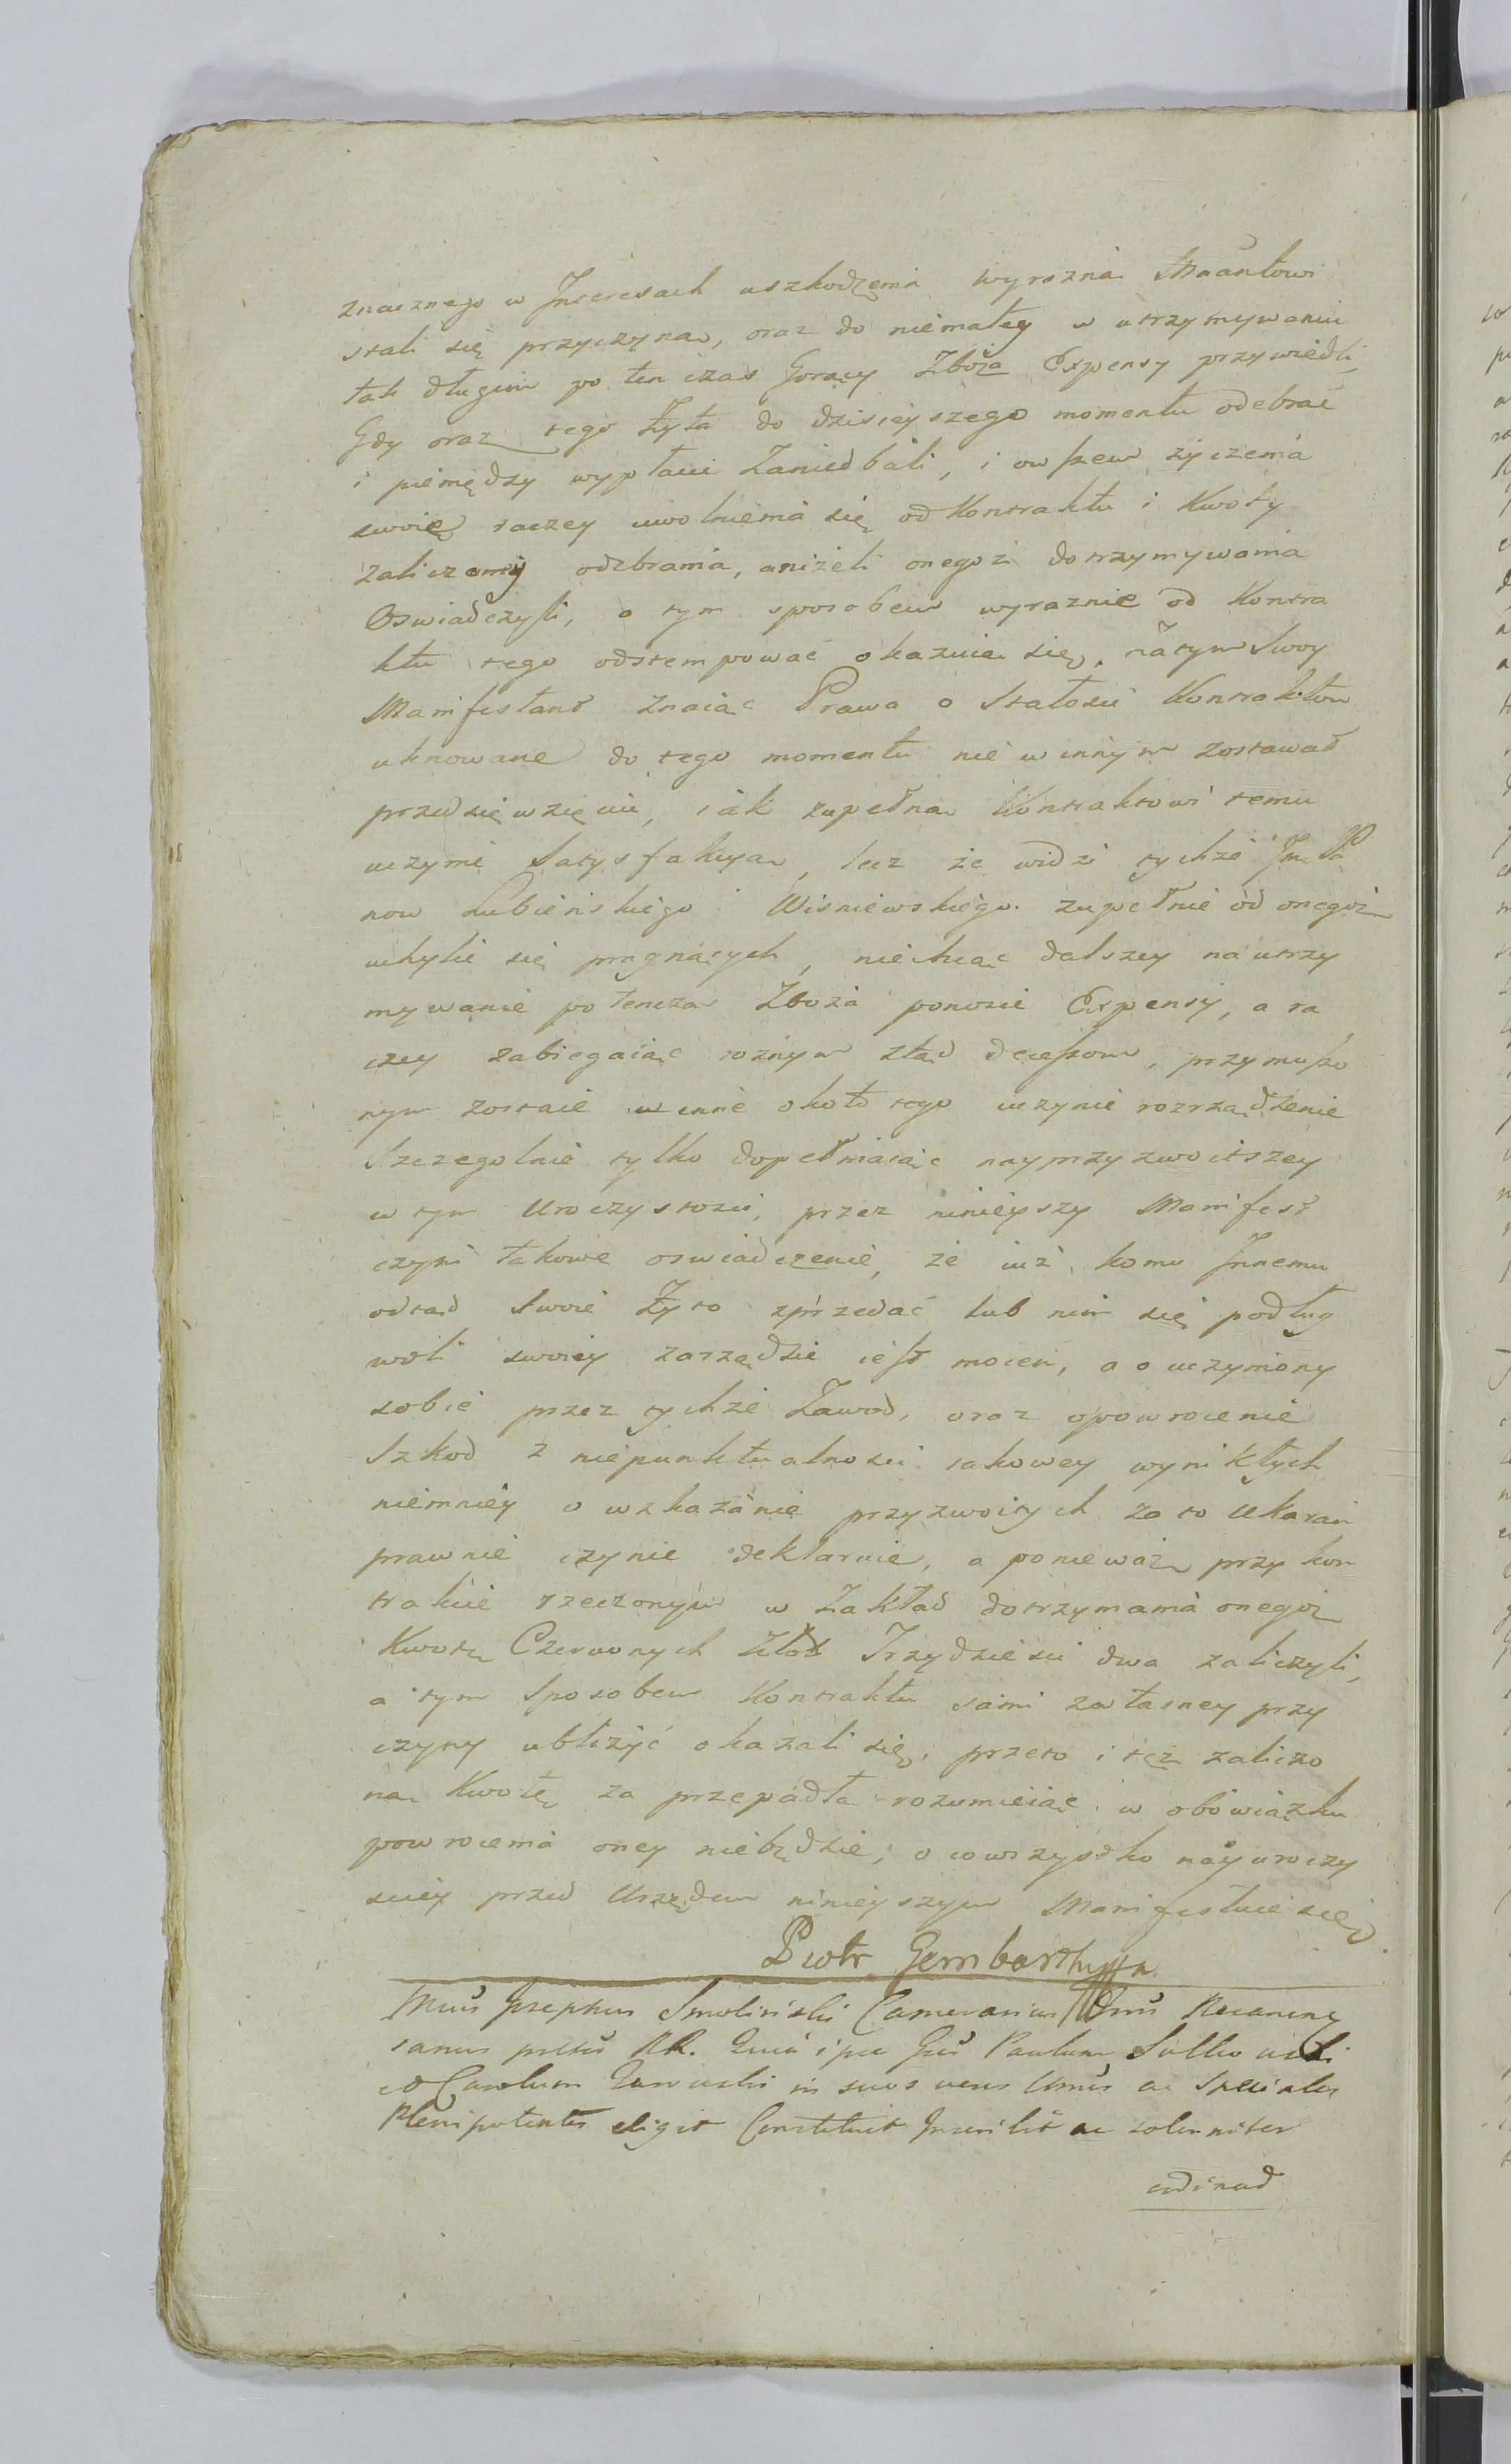 znacznego w Jnteresach uszkodzenia wyrazną Maantowi
stali się przyczyną, oraz do niemałey w utrzymywaniu
tak długim po ten czas Goracy Zboża Expensy przywiedli,
Gdy oraz tego Żyta do dzisieyszego momentu odebrać
i pieniędzy wypłacić Zaniedbali, i owszem życzenia
swoie raczey uwolnienia się od Kontraktu i Kwoty
zaliczoney odebrania, aniżeli onegoż dotrzymywania
Oswiadczyli, o tym sposobem wyraznie od Kontra
ktu tego odstempować okazuią się, zatym Swoy
Manifestant znaiąc Prawa o Stałości Kontraktow
uknowane do tego momentu nie w innym zostawał
przedsięwzięciu, iak zupełną Kontraktowi temu
uczynić Satysfakcyą, lecz że widzi tychże Jm Pa
now Lubieńskiego i Wisniewskiego zupełnie od onegoż
uchylić się pragnących, niechcąc dalszey na utrzy
mywanie po tenczas Zboża ponosić Expensy, a ra
czey zabiegaiąc rożnym ztąd decessom, przymuszo
nym zostaie w inne około tego uczynić rozrządzenie
Szczegolnie tylko dopełniaiąc nayprzyzwoitszey
w tym Uroczystosci, przez ninieyszy Manifest
czyni takowe oswiadczenie, że iuż komu Jnnemu
odtąd Swoie Żyto zprzedać lub nim się podług
woli swoiey zarządzić iest mocen, a o uczyniony
sobie przez tychże Zawod, oraz o powrocenie
Szkod z niepunktualnosci takowey wynikłych
niemniey o wskazanie przyzwoitych za to Ukarań
prawnie czynić deklaruie, a ponieważ przy kon
trakcie rzeczonym w Zakład dotrzymania onegoż
Kwotę Czerwonych Złot Trzydziesci dwa zaliczyli,
a tym Sposobem Kontraktu sami zwłasney przy
czyny ubliżyć okazali się, przeto i też zaliczo
ną Kwotę za przepadłą rozumieiąc w obowiązku
powrocenia oney niebędzie, o co wszystko nayuroczy
sciey przed Urzędem ninieyszym Manifestuie się
Piotr Gembarth
Josephus Smolinski Camerarius
samus Paulum Sulkowski
et Carolum in suos veros ac Speciales
Plenipotentes eligit Constituit ac solenniter
ordinat